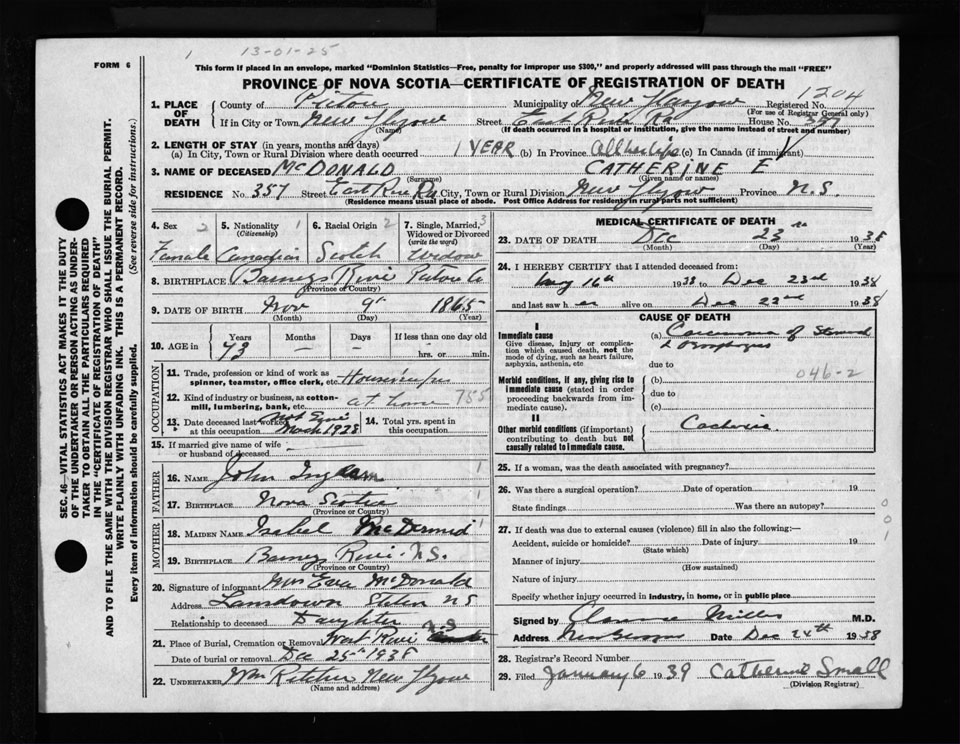 1 13-01-25
FORM 6
This form if placed in an envelope, marked "Dominion Statistics—Free, penalty for improper use $300," and properly addressed will pass through the mail "FREE"
PROVINCE OF NOVA SCOTIA—CERTIFICATE OF REGISTRATION OF DEATH
1204
1. PLACE OF DEATH
County of Pictou Municipality of New Glasgow Registered No.
(For use of Registrar General only)
If in City or Town New Glasgow Street East River Rd House No. 357
(Name) (If death occurred in a hospital or institution, give the name instead of street and number)
2. LENGTH OF STAY (in years, months and days)
(a) In City, Town or Rural Division where death occurred 1 YEAR (b) In Province All her life (c) In Canada (if immigrant)
3. NAME OF DECEASED McDONALD CATHERINE E
(Surname) (Given name or names)
RESIDENCE No. 357 Street East River Rd City, Town or Rural Division New Glasgow Province N.S.
(Residence means usual place of abode. Post Office Address for residents in rural parts not sufficient)
4. Sex 2 5. Nationality 1 6. Racial Origin 2 7. Single, Married, 3
(Citizenship) Widowed or Divorced
(write the word)
Female Canadian Scotch Widow
8. BIRTHPLACE Barneys River Pictou Co
(Province or Country)
9. DATE OF BIRTH Nov 9th 1865
(Month) (Day) (Year)
10. AGE in Years Months Days If less than one day old
73 — — hrs. or min.
OCCUPATION
11. Trade, profession or kind of work as
spinner, teamster, office clerk, etc. Housewife
12. Kind of industry or business, as cotton-
mill, lumbering, bank, etc. at home 755
13. Date deceased last worked
at this occupation March 1938
14. Total yrs. spent in
this occupation
15. If married give name of wife
or husband of deceased —
FATHER
16. NAME John Ingram 1
17. BIRTHPLACE Nova Scotia 1
(Province or Country)
MOTHER
18. MAIDEN NAME Isabel McDermid 1
19. BIRTHPLACE Barneys River N.S.
(Province or Country)
20. Signature of informant Mrs Eva McDonald
Address Lansdown Station N S
Relationship to deceased Daughter
21. Place of Burial, Cremation or Removal West River N.S.
Date of burial or removal Dec 25th 1938
22. UNDERTAKER Wm Kitchen New Glasgow
(Name and address)
MEDICAL CERTIFICATE OF DEATH
23. DATE OF DEATH Dec 23rd 1938
(Month) (Day) (Year)
24. I HEREBY CERTIFY that I attended deceased from:
May 16th 1938 to Dec 23rd 1938
and last saw her alive on Dec 22nd 1938
CAUSE OF DEATH
I
Immediate cause
Give disease, injury or complication which caused death, not the mode of dying, such as heart failure, asphyxia, asthenia, etc
(a) Carcinoma of Stomach
& Oesophagus
due to
046-2
Morbid conditions, if any, giving rise to immediate cause (stated in order proceeding backwards from immediate cause).
(b)
due to
(c)
II
Other morbid conditions (if important) contributing to death but not causally related to immediate cause.
Cachexia
25. If a woman, was the death associated with pregnancy?
26. Was there a surgical operation? Date of operation 19
State findings Was there an autopsy?
27. If death was due to external causes (violence) fill in also the following:—
Accident, suicide or homicide? Date of injury 19
(State which)
Manner of injury
(How sustained)
Nature of injury
Specify whether injury occurred in industry, in home, or in public place
001
Signed by Clarence Miller M.D.
Address New Glasgow Date Dec 24th 1938
28. Registrar's Record Number
29. Filed January 6 1939 Catherine Small
(Division Registrar)
SEC. 46—VITAL STATISTICS ACT MAKES IT THE DUTY
OF THE UNDERTAKER OR PERSON ACTING AS UNDER-
TAKER TO OBTAIN ALL THE PARTICULARS REQUIRED
IN THE "CERTIFICATE OF REGISTRATION OF DEATH"
AND TO FILE THE SAME WITH THE DIVISION REGISTRAR WHO SHALL ISSUE THE BURIAL PERMIT.
WRITE PLAINLY WITH UNFADING INK. THIS IS A PERMANENT RECORD.
Every item of information should be carefully supplied. (See reverse side for instructions.)